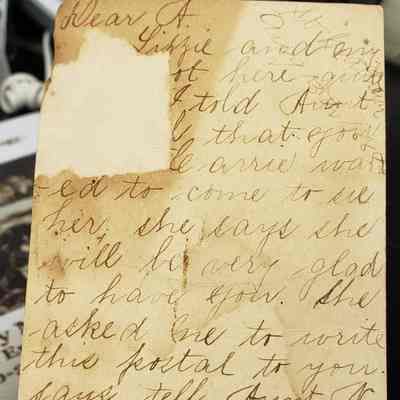 Dear A.
Lizzie and my
ot here
I told Aunt
that you
Carrie want
ed to come to see
her. she says she
will be very glad
to have you. She
asked me to write
this postal to you.
says tell Aunt N